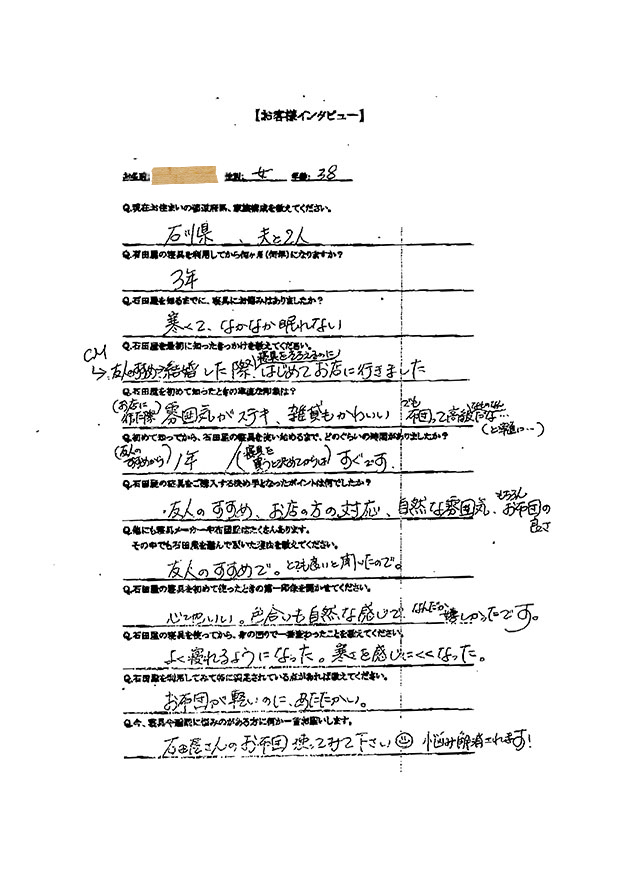 【お客様インタビュー】
お名前: 性別: 女 年齢: 38
Q.現在お住まいの都道府県、家族構成を教えてください。
石川県、夫と2人
Q.石田屋の寝具を利用してから何ヶ月(何年)になりますか？
3年
Q.石田屋を知るまでに、寝具にお悩みはありましたか？
寒くて、なかなか眠れない
Q.石田屋を最初に知ったきっかけを教えてください。
CM→友人のすすめで結婚した際(寝具をそろえるのに)はじめてお店に行きました
Q.石田屋を初めて知ったときの率直な印象は？
(お店に行った際)雰囲気がステキ、雑貨もかわいい でも布団って高級なんだな…(と率直に…)
Q.初めて知ってから、石田屋の寝具を使い始めるまで、どのぐらいの時間がありましたか？
(友人のすすめから)1年 /(寝具を買うと決めてからは)すぐです.
Q.石田屋の寝具をご購入する決め手となったポイントは何でしたか？
・友人のすすめ、お店の方の対応、自然な雰囲気、もちろんお布団の良さ
Q.他にも寝具メーカーや布団店はたくさんあります。
その中でも石田屋を選んで頂いた理由を教えてください。
友人のすすめで。とても良いと聞いたので。
Q.石田屋の寝具を初めて使ったときの第一印象を聞かせてください。
心地いい。色合いも自然な感じで なんだか嬉しかったです。
Q.石田屋の寝具を使ってから、身の回りで一番変わったことを教えてください。
よく寝れるようになった。寒さを感じにくくなった。
Q.石田屋を利用してみて特に満足されている点があれば教えてください。
お布団が軽いのに、あたたかい。
Q.今、寝具や睡眠に悩みのがある方に何か一言お願いします。
石田屋さんのお布団使ってみて下さい 悩み解消されます!